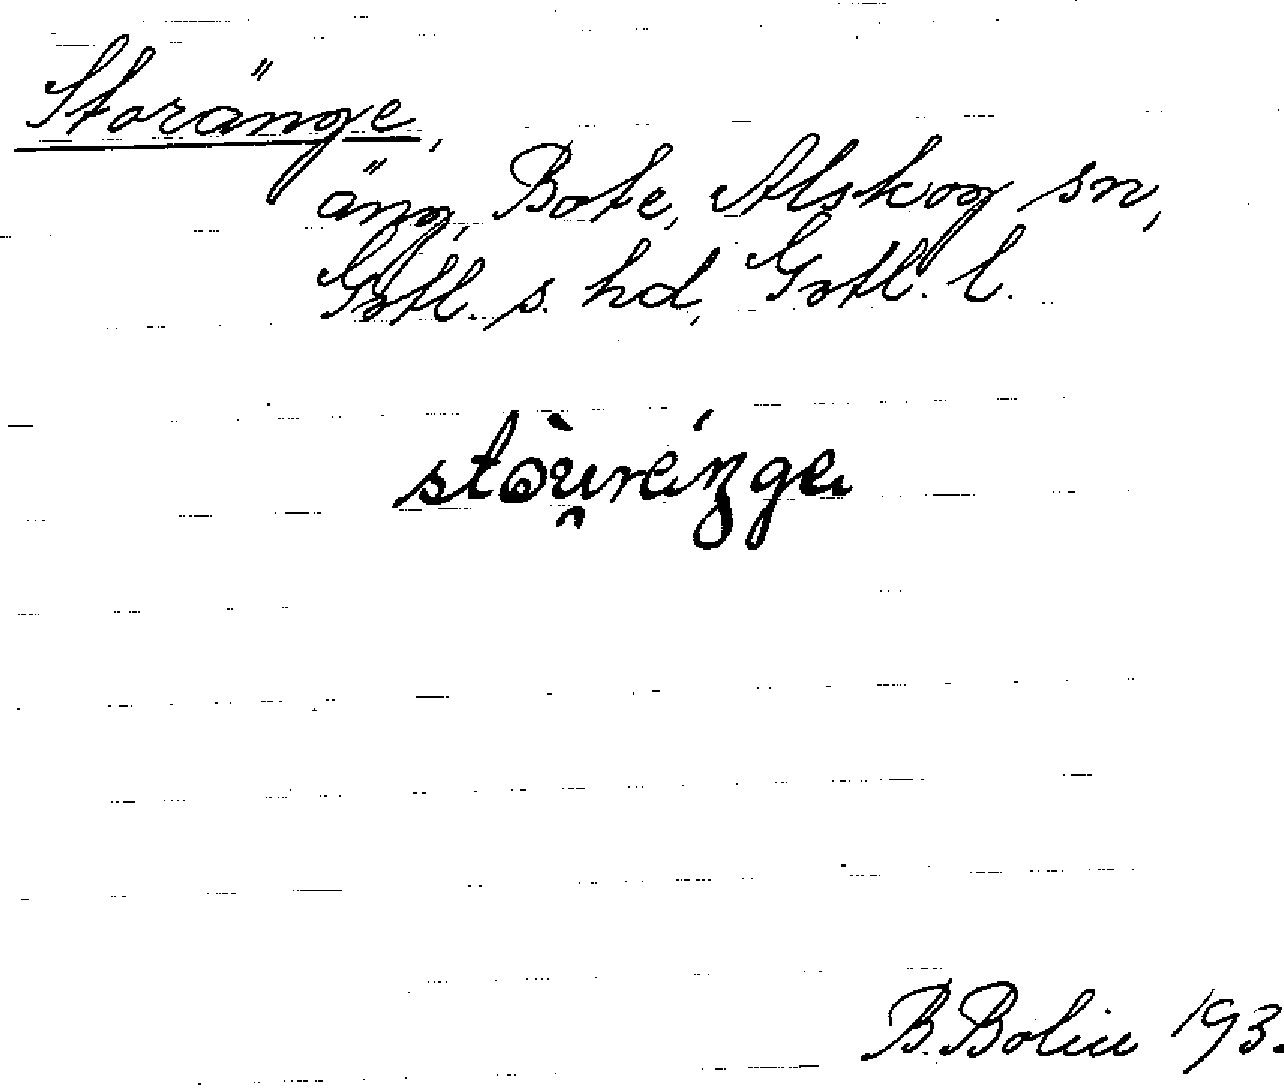 Storänge,
äng, Bote, Alskog sn,
Gotl. s. hd, Gotl. l.
stòu̯réŋge
B. Bolin 193.